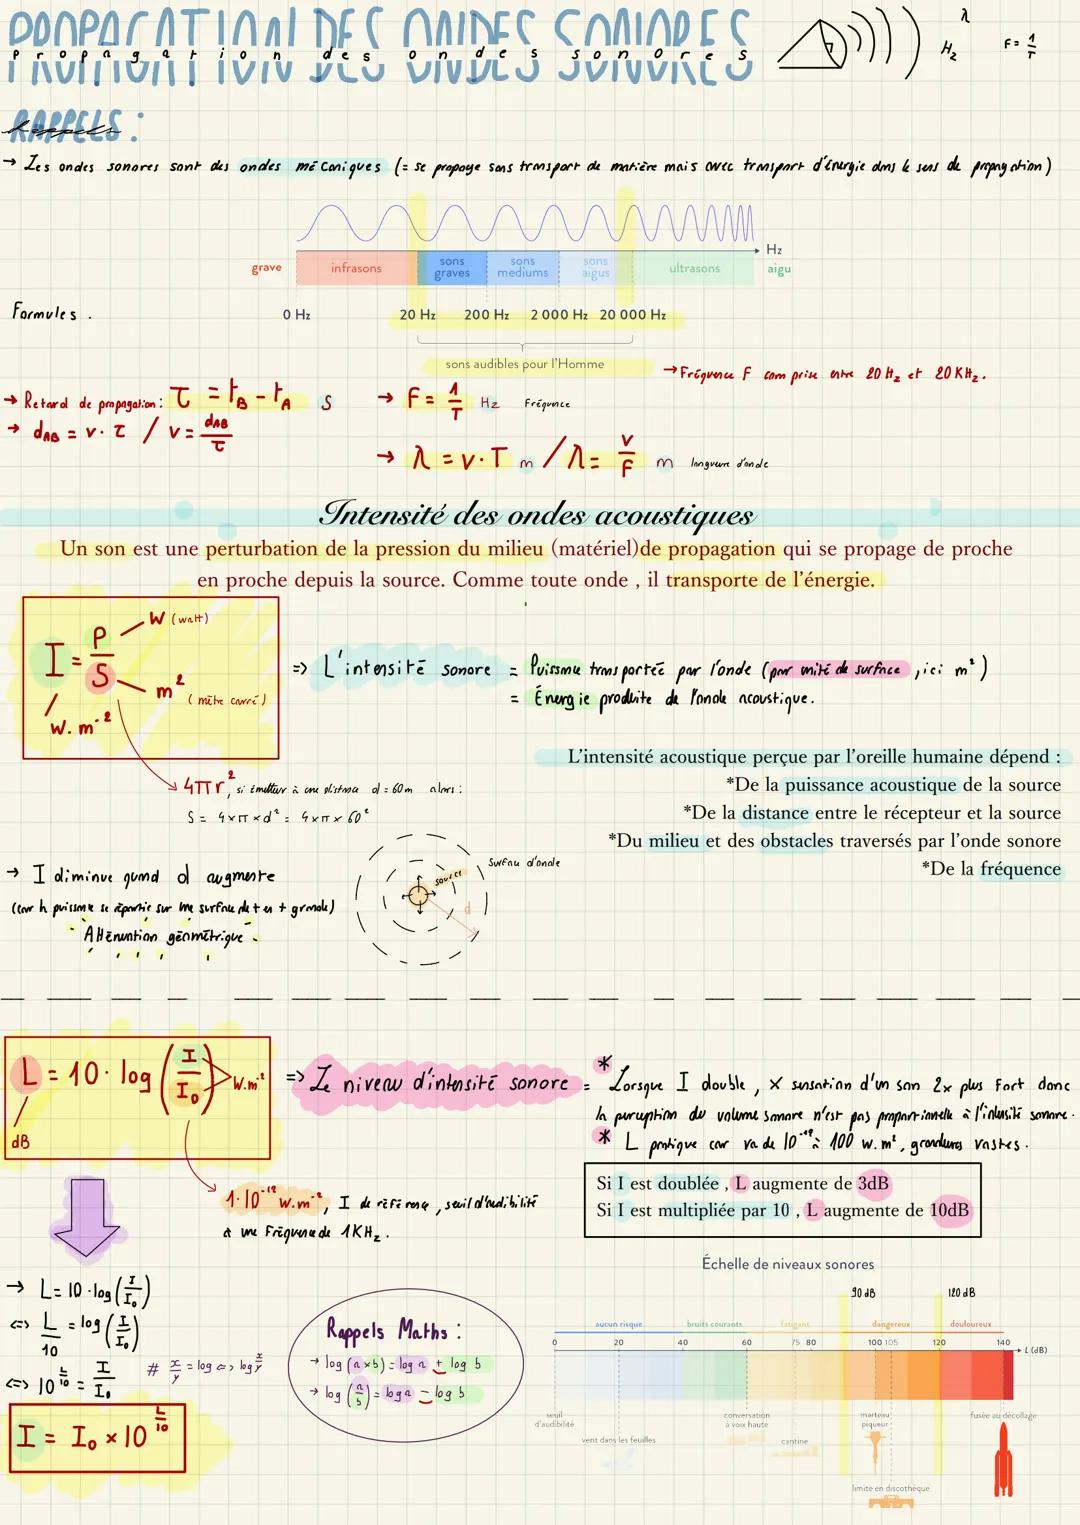 PROPAGATION DES ONDES SONORES
Propagation des ondes sonores
λ
Hz
F = 1/T
RAPPELS :
Rappels
→ Les ondes sonores sont des ondes mécaniques (= se propage sans transport de matière mais avec transport d'énergie dans le sens de propagation)
Hz
grave infrasons sons graves sons mediums sons aigus ultrasons aigu
Formules .
0 Hz 20 Hz 200 Hz 2 000 Hz 20 000 Hz
sons audibles pour l'Homme
→ Fréquence F comprise entre 20 Hz et 20 KHz.
→ Retard de propagation : τ = tB - tA s
→ dAB = v · τ / v = dAB/τ
→ F = 1/T Hz Fréquence
→ λ = v · T m / λ = v/F m longueure d'onde
Intensité des ondes acoustiques
Un son est une perturbation de la pression du milieu (matériel)de propagation qui se propage de proche
en proche depuis la source. Comme toute onde , il transporte de l'énergie.
I = P/S
W (watt)
m² (mètre carré)
W.m⁻²
=> L'intensité sonore = Puissance transportée par l'onde (par unité de surface , ici m²)
= Énergie produite de l'onde acoustique.
4πr², si émetteur à une distance d = 60m alors :
S = 4×π×d² = 4×π×60²
L'intensité acoustique perçue par l'oreille humaine dépend :
*De la puissance acoustique de la source
*De la distance entre le récepteur et la source
*Du milieu et des obstacles traversés par l'onde sonore
*De la fréquence
→ I diminue quand d augmente
(car la puissance se répartie sur une surface de + en + grande)
Atténuation géométrique
Surface d'onde
source
d
L = 10 · log (I/I₀) W.m⁻²
dB
=> Le niveau d'intensité sonore = * Lorsque I double , × sensation d'un son 2x plus fort donc
la perception du volume sonore n'est pas proportionnelle à l'intensité sonore.
* L pratique car va de 10⁻¹² à 100 w.m², grandeures vastes.
1·10⁻¹² W.m⁻², I de référence , seuil d'audibilité
à une Fréquence de 1KHz.
Si I est doublée , L augmente de 3dB
Si I est multipliée par 10 , L augmente de 10dB
→ L = 10 · log (I/I₀)
<=> L/10 = log (I/I₀)
<=> 10^(L/10) = I/I₀
# x/y = log <=> log x/y
I = I₀ × 10^(L/10)
Rappels Maths :
→ log (a×b) = log a + log b
→ log (a/b) = log a - log b
Échelle de niveaux sonores
90 dB 120 dB
aucun risque bruits courants fatigant dangereux douloureux
0 20 40 60 75 80 100 105 120 140 L (dB)
seuil d'audibilité
conversation à voix haute
marteau piqueur
fusée au décollage
vent dans les feuilles
cantine
limite en discothèque